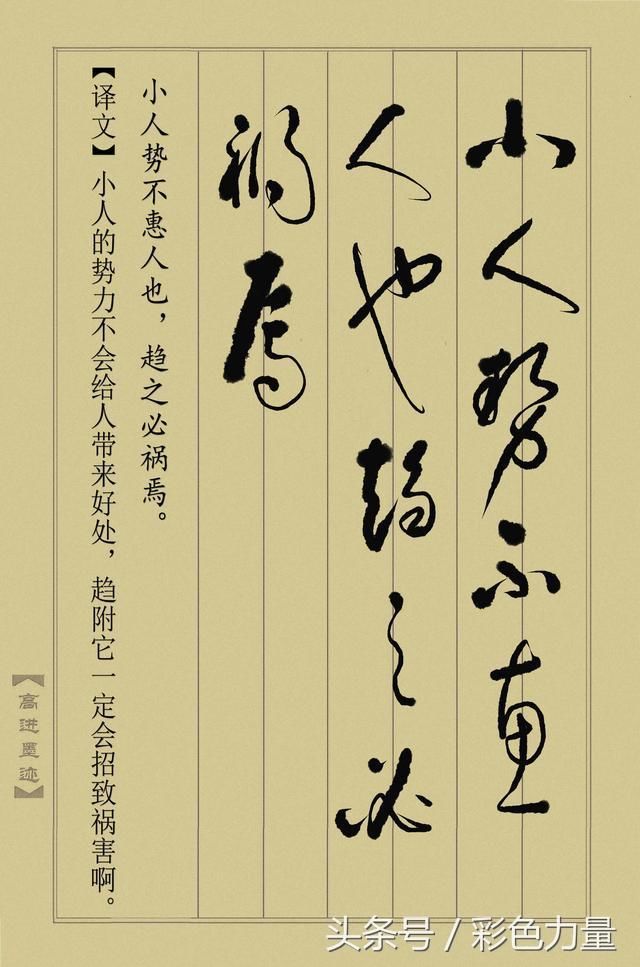 小人势不惠
人也趋之必
祸焉
小人势不惠人也，趋之必祸焉。
【译文】小人的势力不会给人带来好处，趋附它一定会招致祸害啊。
【高进墨迹】
头条号 / 彩色力量